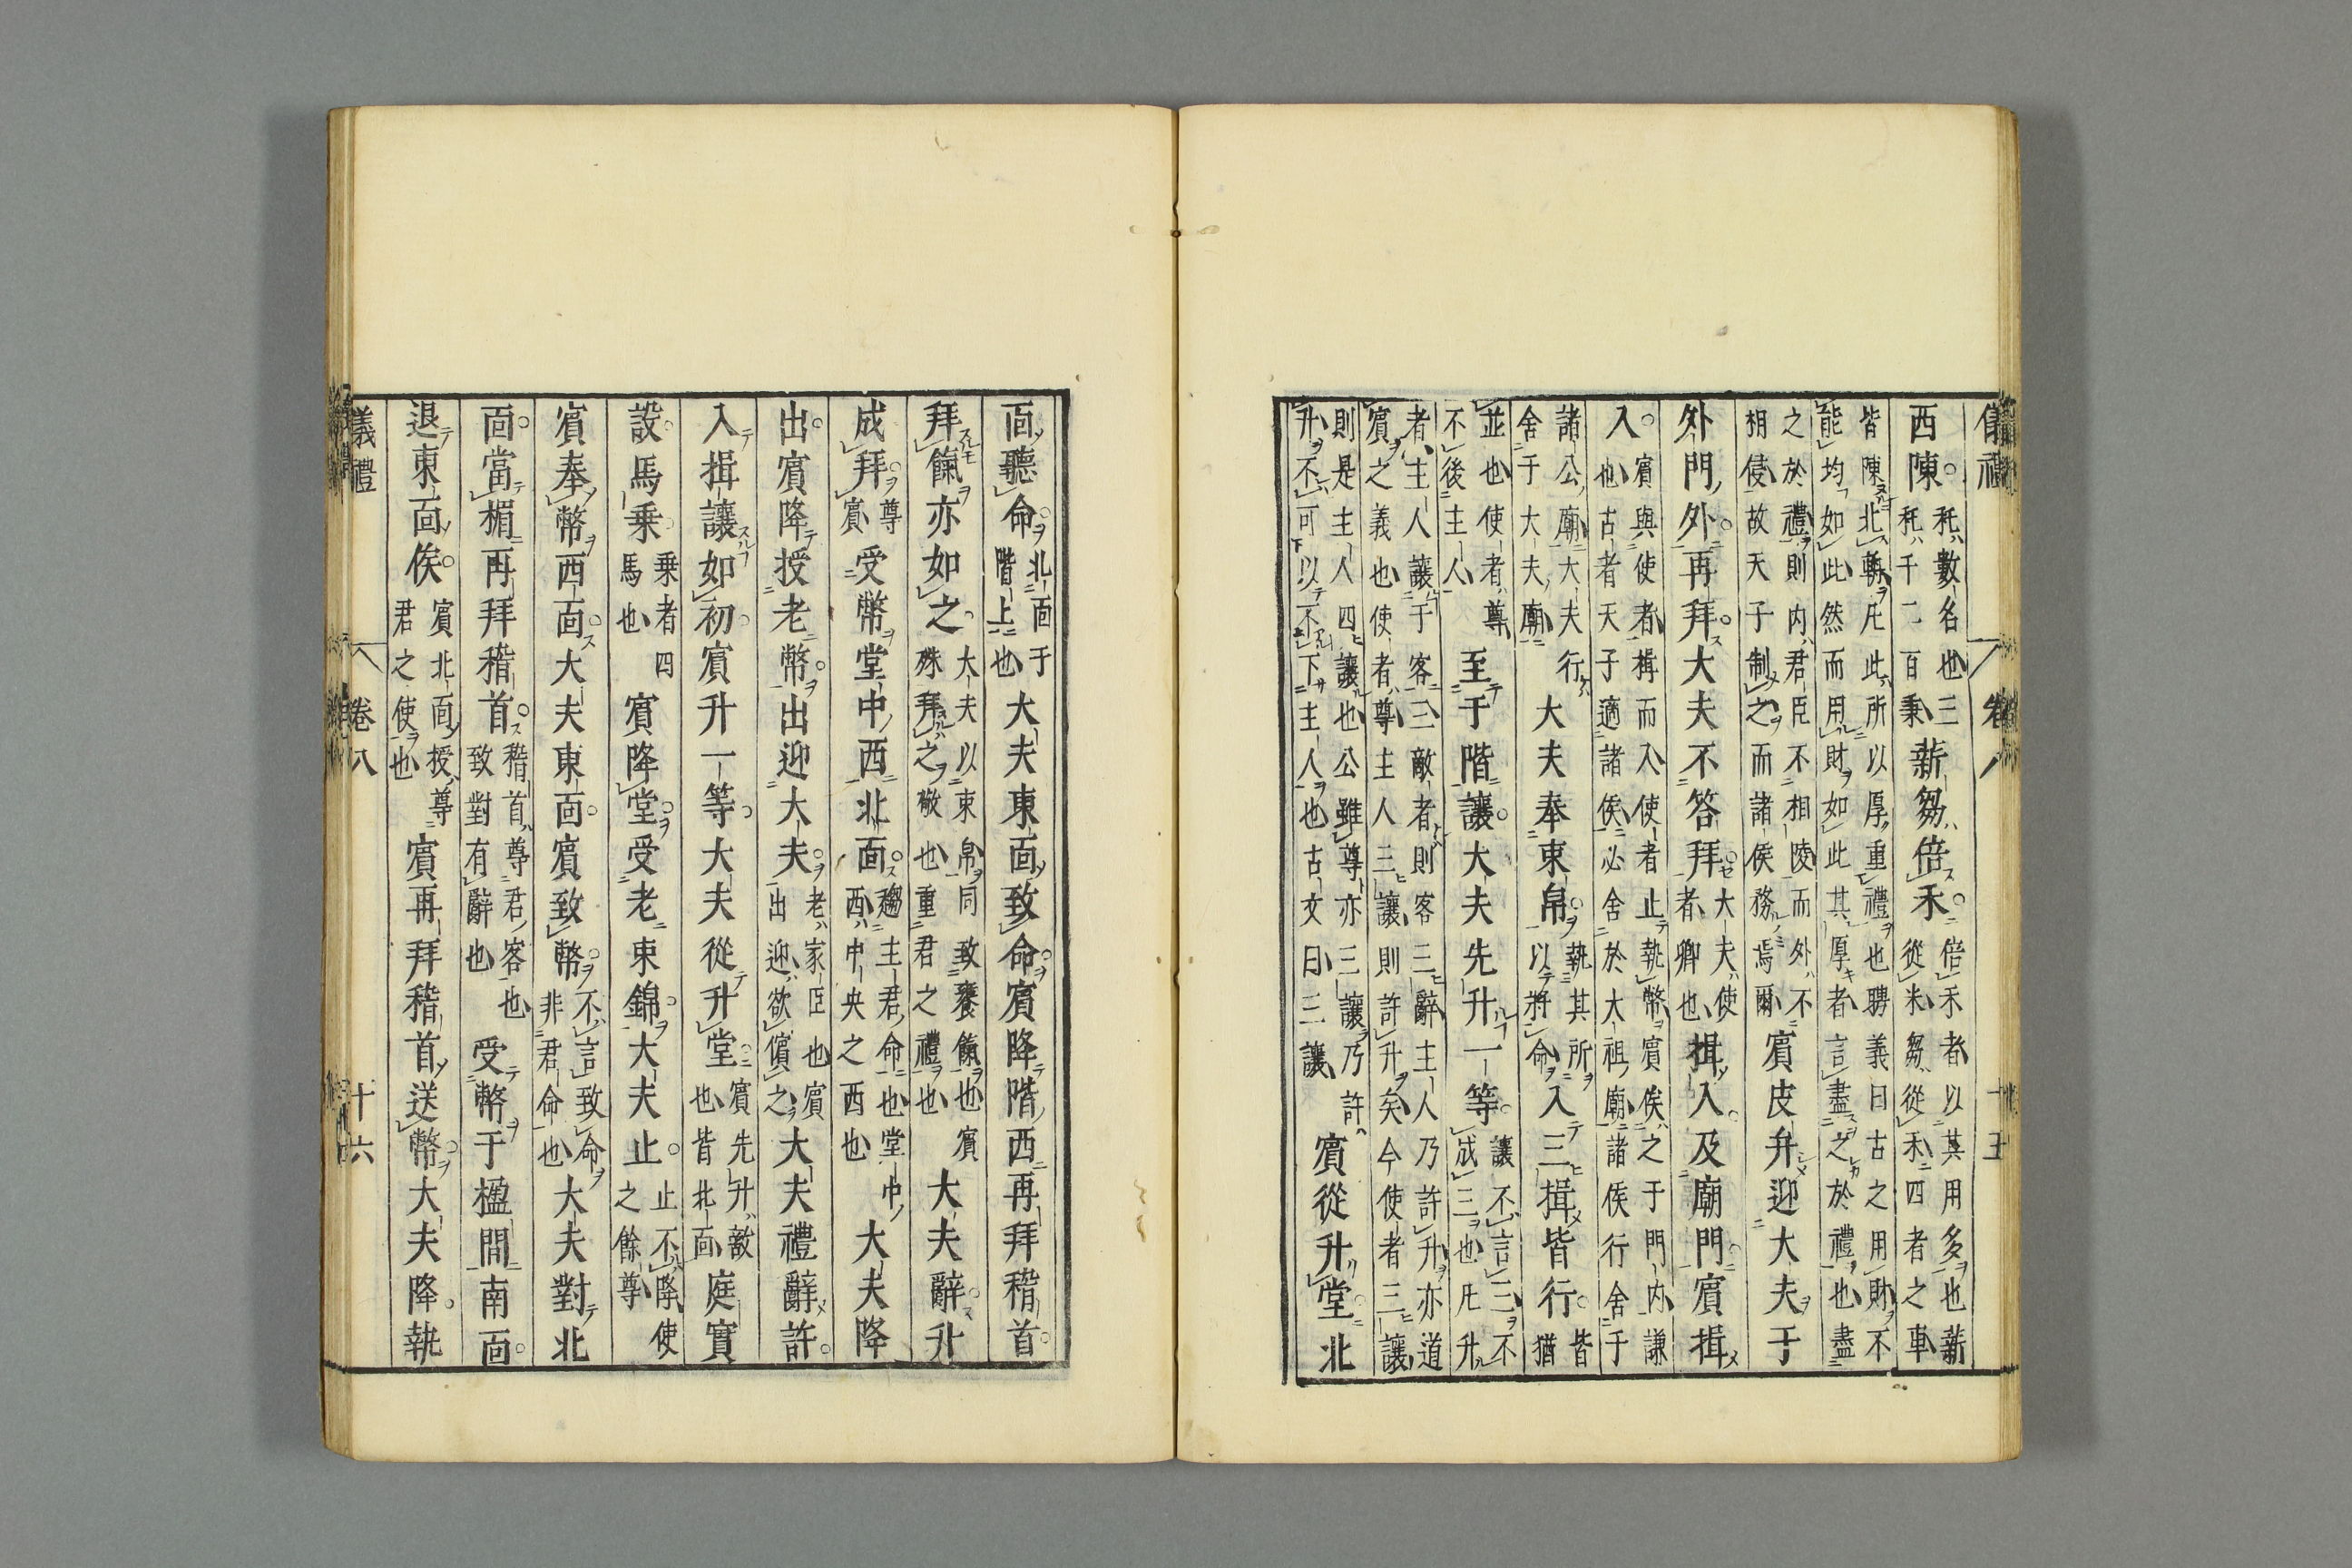 儀禮 卷八 十五
西陳。秅數名也三秅千二百秉薪芻倍禾。倍禾者以其用多也薪從米芻從禾四者之車
皆陳北輈凡此所以厚重禮也聘義曰古之用財不能均如此然而用財如此其厚者言盡之於禮也盡
之於禮則内君臣不相陵而外不相侵故天子制之而諸侯務焉爾賓皮弁迎大夫于
外門外。再拜。大夫不答拜。大夫使者卿也揖入。及廟門。賓揖
入。賓與使者揖而入使者止執幣賓俟之于門内謙也古者天子適諸侯必舍於大祖廟諸侯行舍于
諸公廟大夫行舍于大夫廟大夫奉束帛。執其所以將命入三揖皆行。皆猶
並也使者尊不後主人至于階讓。大夫先升一等。讓不言三不成三也凡升
者主人讓于客三敵者則客三辭主人乃許升亦道賓之義也使者尊主人三讓則許升矣今使者三讓
則是主人四讓也公雖尊亦三讓乃許升不可以不下主人也古文曰三讓賓從升堂。北
面聽命。北面于階上也大夫東面致命。賓降階西再拜稽首。
拜餼亦如之。大夫以束帛同致饔餼也賓殊拜之敬也重君之禮也大夫辭。升
成拜。尊賓受幣堂中西北面。趨主君命也堂中西中央之西也大夫降
出。賓降授老幣。出迎大夫。老家臣也賓出迎欲儐之大夫禮辭許。
入揖讓如初。賓升一等。大夫從升堂。賓先升敵也皆北面庭實
設。馬乘。乘者四馬也賓降堂。受老束錦。大夫止。止不降使之餘尊
賓奉幣西面。大夫東面。賓致幣。不言致命非君命也大夫對北
面。當楣再拜稽首。稽首尊君客也致對有辭也受幣于楹間南面。
退東面俟。賓北面授尊君之使也賓再拜稽首送幣。大夫降。執
儀禮 卷八 十六